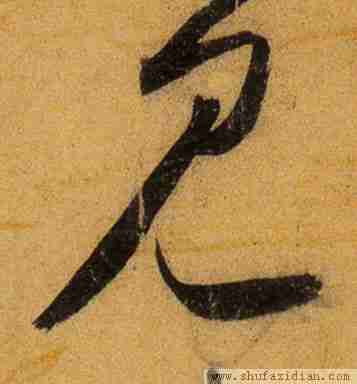 見
www.shufazidian.com